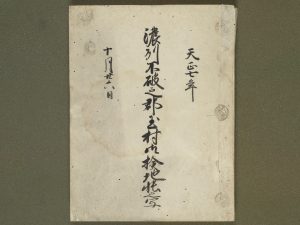 天正七年
濃州不破之郡玉村御検地帳之写
十月廿八日